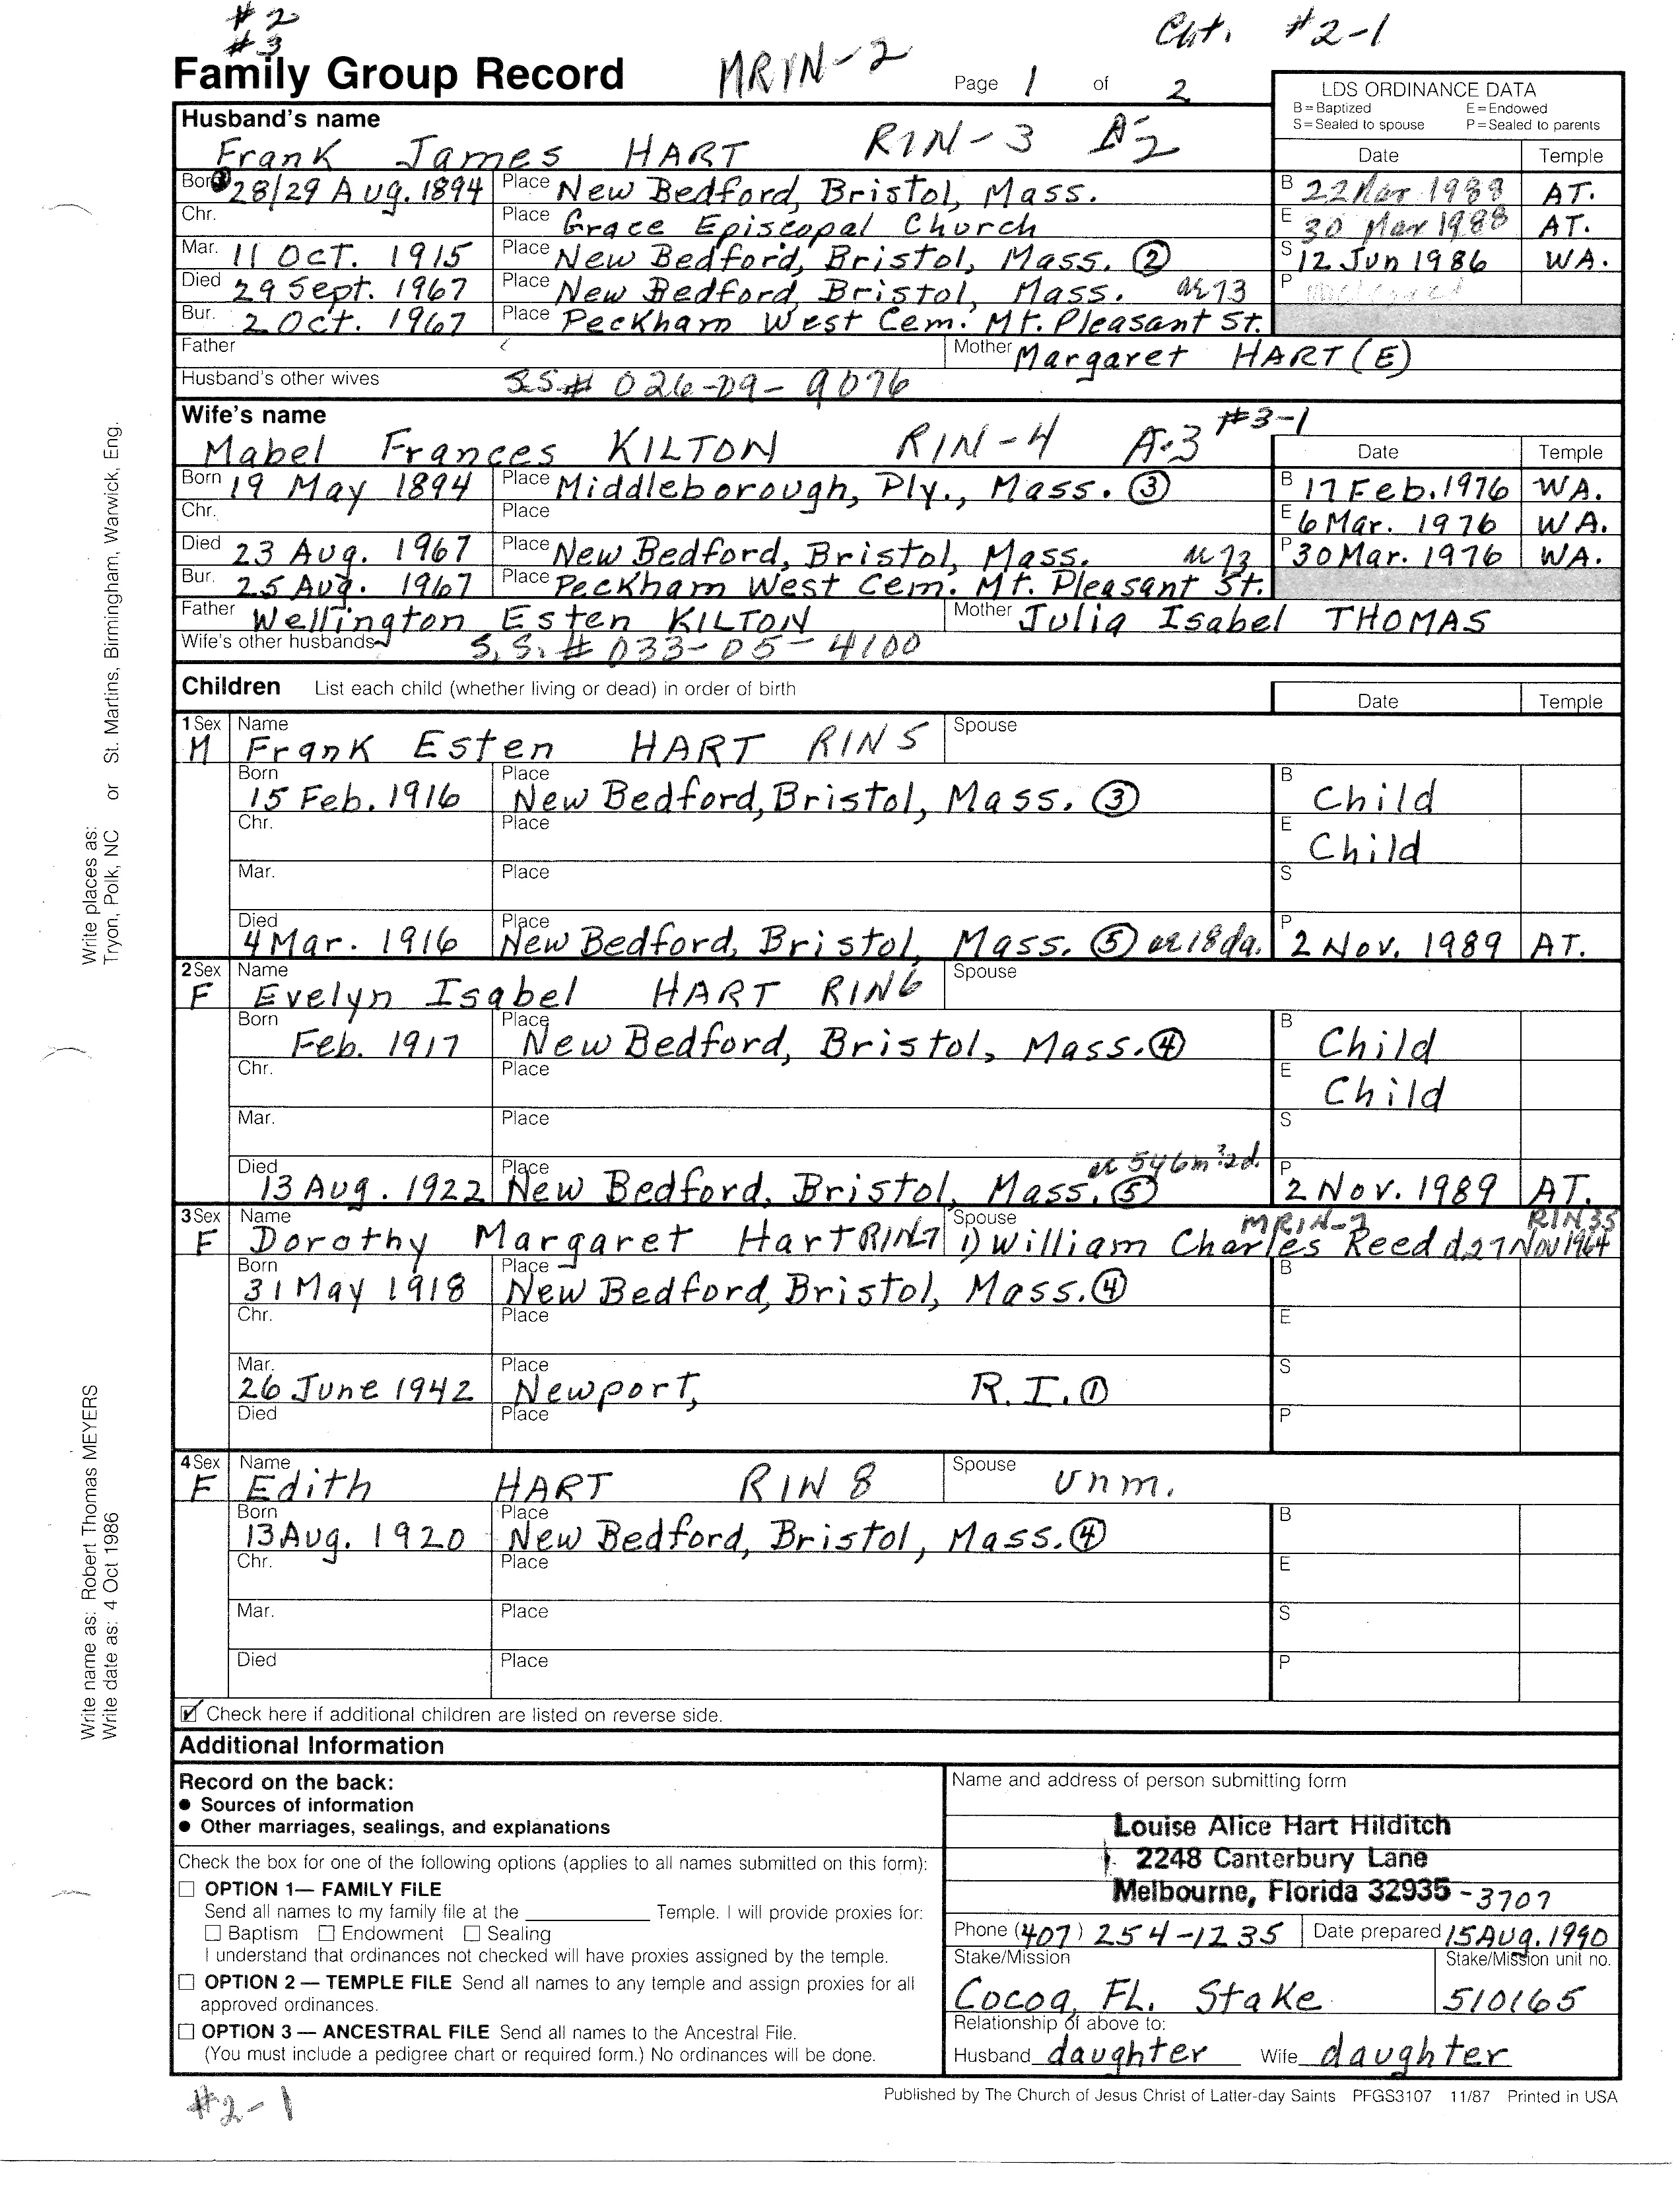 #2
#3
Cht. #2-1
Family Group Record MRIN-2 Page 1 of 2
LDS ORDINANCE DATA
B=Baptized E=Endowed
S=Sealed to spouse P=Sealed to parents
Husband's name
Frank James HART RIN-3 A-2
Date Temple
Born 28/29 Aug. 1894 Place New Bedford, Bristol, Mass. B 22 Mar 1988 AT.
Chr. Place Grace Episcopal Church E 30 Mar 1988 AT.
Mar. 11 Oct. 1915 Place New Bedford, Bristol, Mass. ② S 12 Jun 1986 WA.
Died 29 Sept. 1967 Place New Bedford, Bristol, Mass. ae 73 P
Bur. 2 Oct. 1967 Place Peckham West Cem. Mt. Pleasant St.
Father Mother Margaret HART (E)
Husband's other wives SS# 026-09-9076
Wife's name #3-1
Mabel Frances KILTON RIN-4 A-3
Date Temple
Born 19 May 1894 Place Middleborough, Ply., Mass. ③ B 17 Feb. 1976 WA.
Chr. Place E 6 Mar. 1976 WA.
Died 23 Aug. 1967 Place New Bedford, Bristol, Mass. ae 73 P 30 Mar. 1976 WA.
Bur. 25 Aug. 1967 Place Peckham West Cem. Mt. Pleasant St.
Father Wellington Esten KILTON Mother Julia Isabel THOMAS
Wife's other husbands S.S.# 033-05-4100
Children List each child (whether living or dead) in order of birth
Date Temple
1 Sex Name Spouse
M Frank Esten HART RIN 5
Born Place B
15 Feb. 1916 New Bedford, Bristol, Mass. ③ Child
Chr. Place E
Child
Mar. Place S
Died Place P
4 Mar. 1916 New Bedford, Bristol, Mass. ⑤ ae 18da. 2 Nov. 1989 AT.
2 Sex Name Spouse
F Evelyn Isabel HART RIN6
Born Place B
Feb. 1917 New Bedford, Bristol, Mass. ④ Child
Chr. Place E
Child
Mar. Place S
Died Place P
13 Aug. 1922 New Bedford, Bristol, Mass. ⑤ 2 Nov. 1989 AT.
3 Sex Name Spouse MRIN-7 RIN 35
F Dorothy Margaret Hart RIN7 1) William Charles Reed d 27 Nov 1964
Born Place B
31 May 1918 New Bedford, Bristol, Mass. ④
Chr. Place E
Mar. Place S
26 June 1942 Newport, R.I. ①
Died Place P
4 Sex Name Spouse
F Edith HART RIN 8 unm.
Born Place B
13 Aug. 1920 New Bedford, Bristol, Mass. ④
Chr. Place E
Mar. Place S
Died Place P
Check here if additional children are listed on reverse side.
Additional Information
Record on the back:
● Sources of information
● Other marriages, sealings, and explanations
Check the box for one of the following options (applies to all names submitted on this form):
OPTION 1— FAMILY FILE
Send all names to my family file at the Temple. I will provide proxies for:
Baptism Endowment Sealing
I understand that ordinances not checked will have proxies assigned by the temple.
OPTION 2 — TEMPLE FILE Send all names to any temple and assign proxies for all
approved ordinances.
OPTION 3 — ANCESTRAL FILE Send all names to the Ancestral File.
(You must include a pedigree chart or required form.) No ordinances will be done.
Name and address of person submitting form
Louise Alice Hart Hilditch
2248 Canterbury Lane
Melbourne, Florida 32935-3707
Phone (407) 254-1235 Date prepared 15 Aug. 1990
Stake/Mission Stake/Mission unit no.
Cocoa, FL. Stake 510165
Relationship of above to:
Husband daughter Wife daughter
#2-1
Published by The Church of Jesus Christ of Latter-day Saints PFGS3107 11/87 Printed in USA
Write places as: Tryon, Polk, NC or St. Martins, Birmingham, Warwick, Eng.
Write name as: Robert Thomas MEYERS
Write date as: 4 Oct 1986